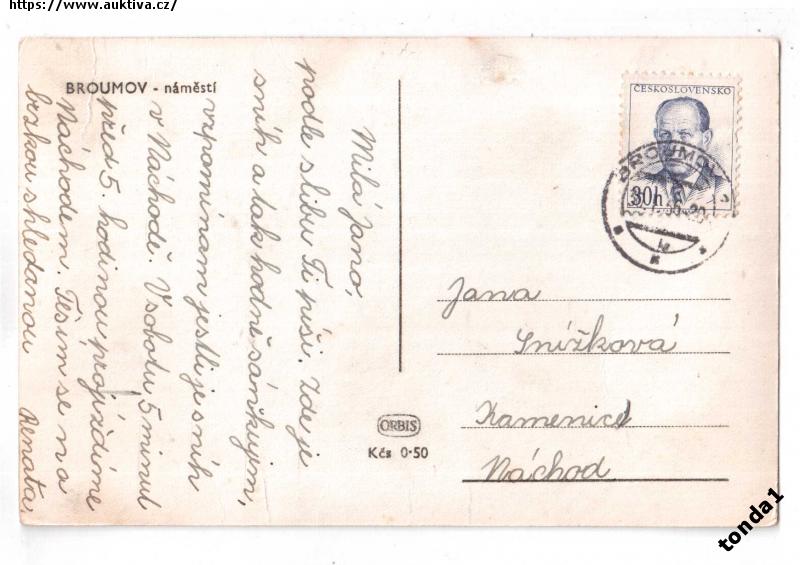 https://www.auktiva.cz/
BROUMOV - náměstí
Milá Jano,
podle slibu Ti píši. Zde je
sníh a tak hodně sáňkujem,
vzpomínám jestli je sníh
v Náchodě. V sobotu 5 minut
před 5. hodinou projíždíme
Náchodem. Těším se na
brzkou shledanou
Renata.
ČESKOSLOVENSKO
30h
BROUMOV
Jana
Snížková
Kamenice
Náchod
ORBIS
Kčs 0·50
tonda1